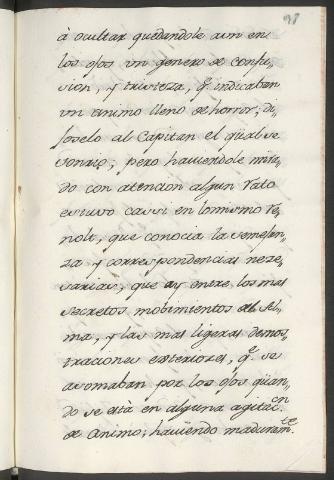 98
à ocultar quedandole aun en
los ojos un genero de confu-
sion, y tristeza, q.e indicaban
un animo lleno de horror; di-
joselo al Capitan el qual se
sonrio; pero haviendole mira-
do con atencion algun rato
estuvo cassi en lo mismo Re-
nolt, que conocia la semejan-
za y correspondencias neze-
sarias, que ay entre los mas
secretos mobimientos del Al-
ma, y las mas ligeras demos-
traciones exteriores, q.e se
asomaban por los ojos quan-
do se està en alguna agitac.on
de animo; haviendo maduram.te